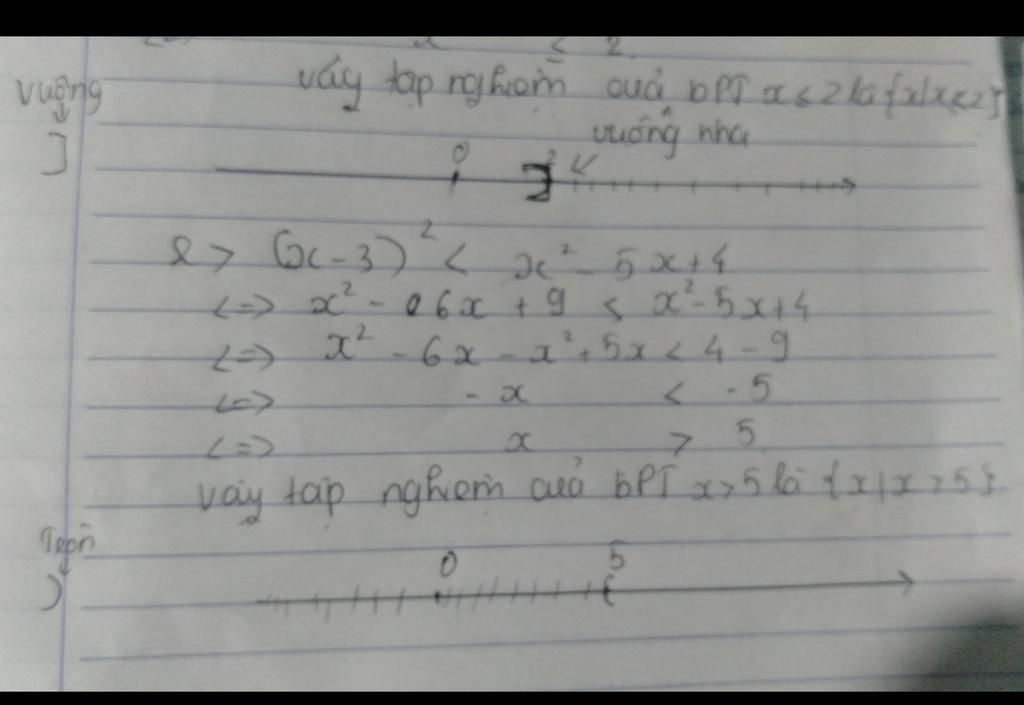 <=> x ≤ 2
Vậy tập nghiệm của bPT x ≤ 2 là {x|x ≤ 2}
vuông
]
vuông nha
0 2
2> (x-3)² < x² - 5x+4
<=> x² - 6x + 9 < x²-5x+4
<=> x² - 6x - x² + 5x < 4 - 9
<=> - x < -5
<=> x > 5
Vậy tập nghiệm của bPT x>5 là {x|x>5}
Tròn
)
0 5